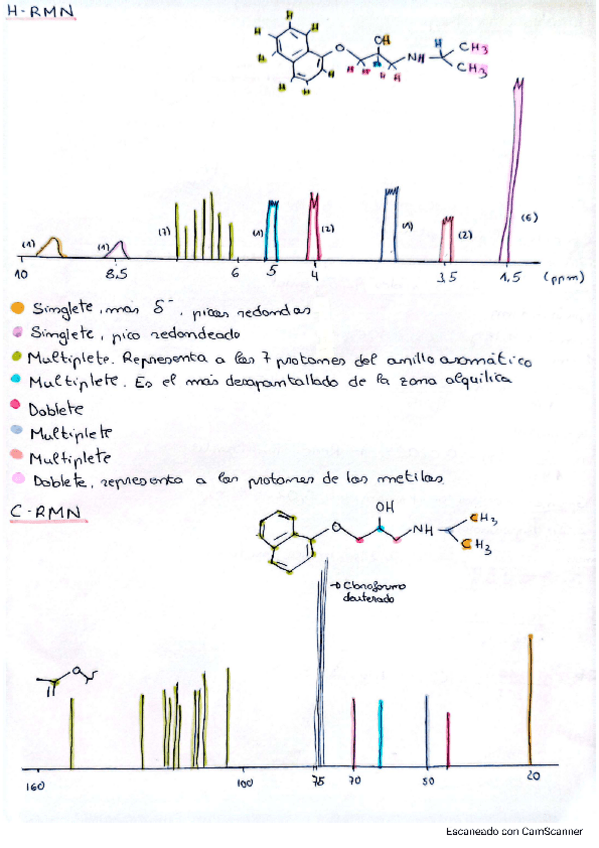 H-RMN
H
H
H
H
H
H
H
O
OH
H
H
H
H
H
NH
H
CH3
CH3
(1)
(1)
(7)
(1)
(2)
(1)
(2)
(6)
10
8,5
6
5
4
3,5
1,5
(ppm)
Singlete, más δ⁻, picos redondos
Singlete, pico redondeado
Multiplete. Representa a los 7 protones del anillo aromático
Multiplete. Es el más desapantallado de la zona alquílica
Doblete
Multiplete
Multiplete
Doblete, representa a los protones de los metilos
C-RMN
O
OH
NH
CH3
CH3
→ Cloroformo
deuterado
O
160
100
75
70
50
20
Escaneado con CamScanner